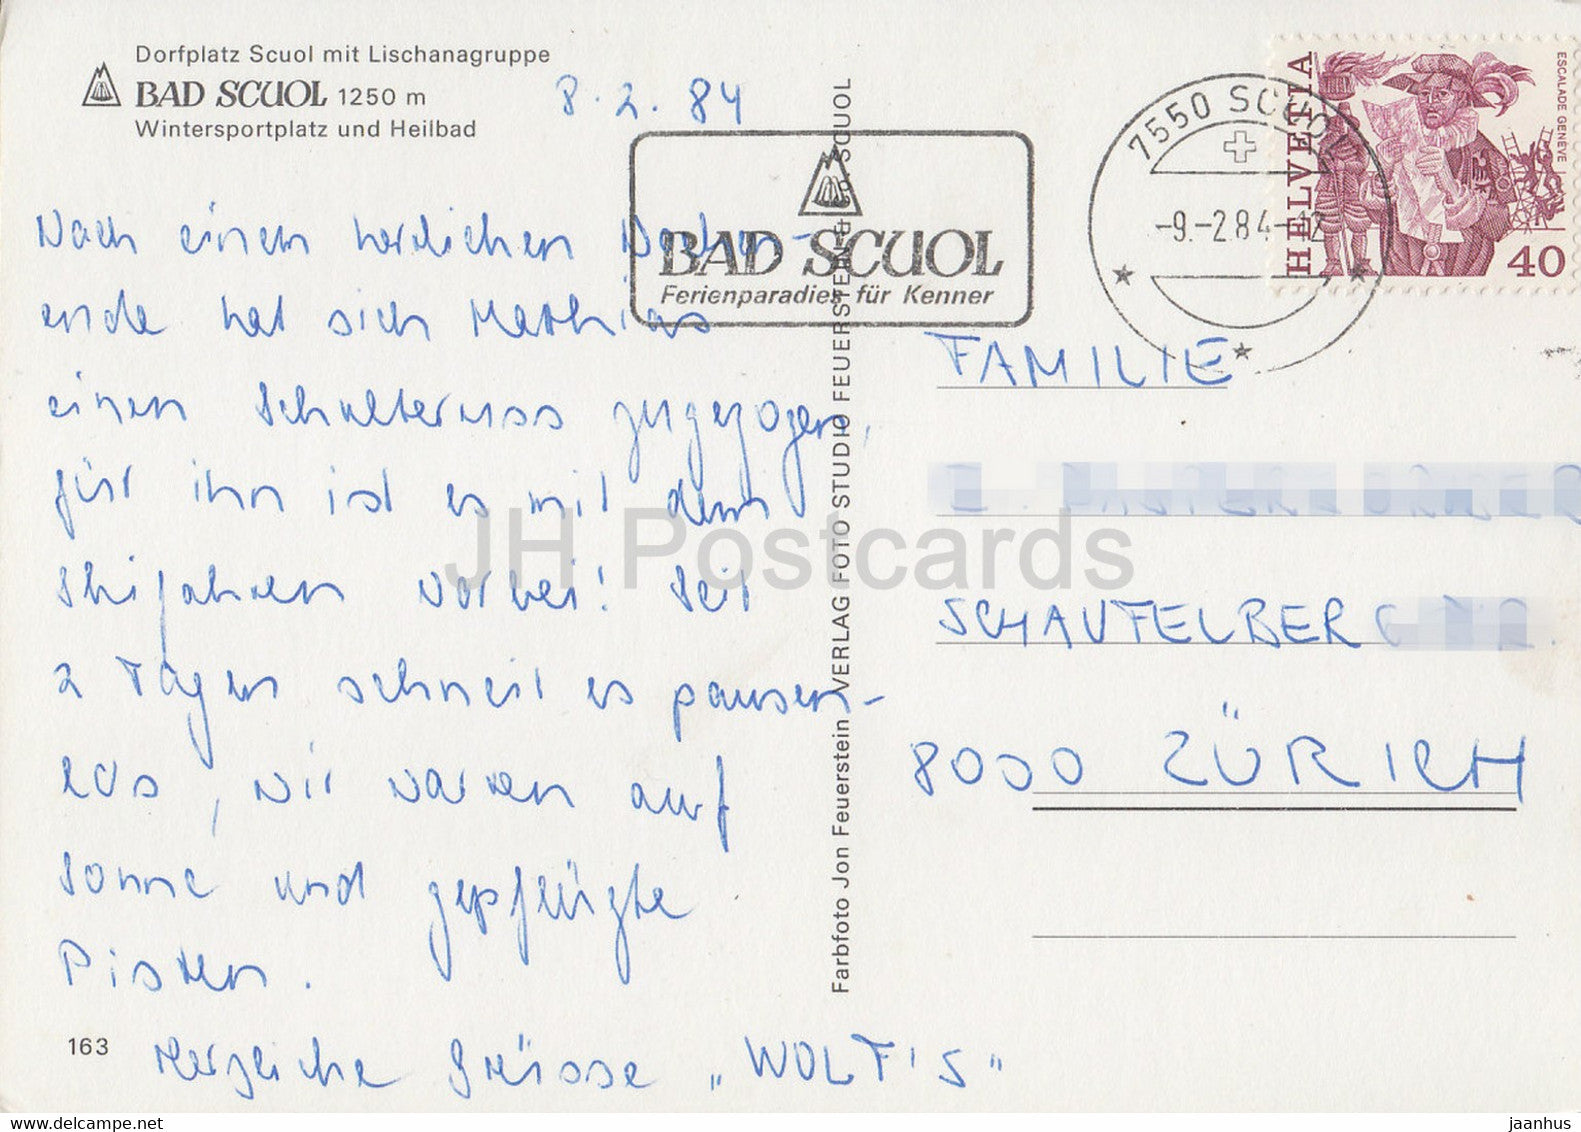 Dorfplatz Scuol mit Lischanagruppe
BAD SCUOL 1250 m
Wintersportplatz und Heilbad
8.2.84
Nach einem herrlichen Wochen-
ende hat sich Mathias
einen Schulterriss zugezogen,
für ihn ist es mit dem
Skifahren vorbei! Seit
2 Tagen schneit es pausen-
los, wir warten auf
Sonne und gepflügte
Pisten.
163
Herzliche Grüsse „WOLF'S"
Farbfoto Jon Feuerstein VERLAG FOTO STUDIO FEUERSTEIN SCUOL
BAD SCUOL
Ferienparadies für Kenner
7550 SCUOL
-9.-2.84-12
HELVETIA
ESCALADE GENÈVE
40
FAMILIE
SCHAUFELBERG
8000 ZÜRICH
JH Postcards
www.delcampe.net
jaanhus